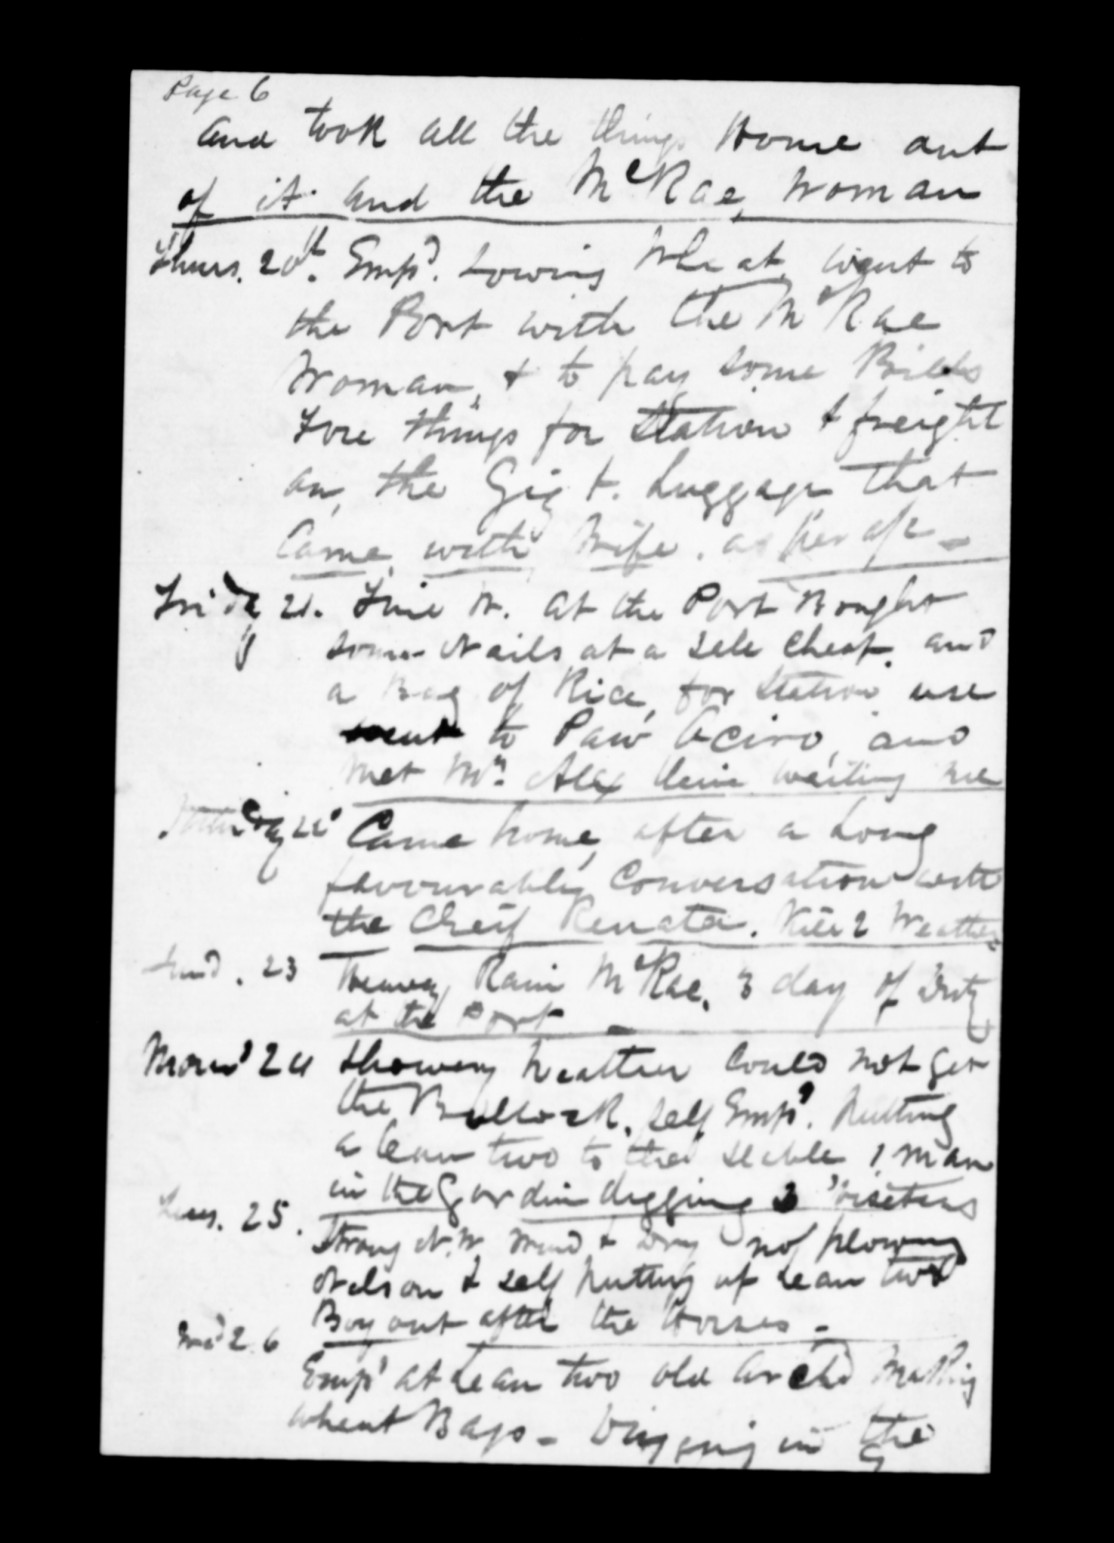 Page 6
and took all the things Home out
of it and the McRae, Woman
Thurs. 20th. Empd. Sowing Wheat, went to
the Port with the McRae
Woman, & to pay some Bills
Fore things for Station & freight
on, the Gig &. Luggage that
Came, with Wife. as per a/c
Friday 21. Fine W. at the Port Bought
some Nails at a Sele Cheap. and
a Bag of Rice, for Station use
went to Paw, and
Met Mr. Alex their waiting me
22d Came home, after a Long
favourably Conversation with
the Cheif Renata. 2 Weather
Sund. 23 Heavy Rain McRae. 3 day of Duty
at the Port
Mond 24 Showery Weather Could not get
the Bullock. self Empd. Putting
a lean two to the stable 1 man
in the Gordin digging 3 Viseters
Tues. 25. Strong N.W. Wind & Dry not plowing
Nelson & self Putting up Lean two
Boy out after the Horses -
Wed 26 Empd at Lean two old Archd Making
wheat Bags - Digging in the
G